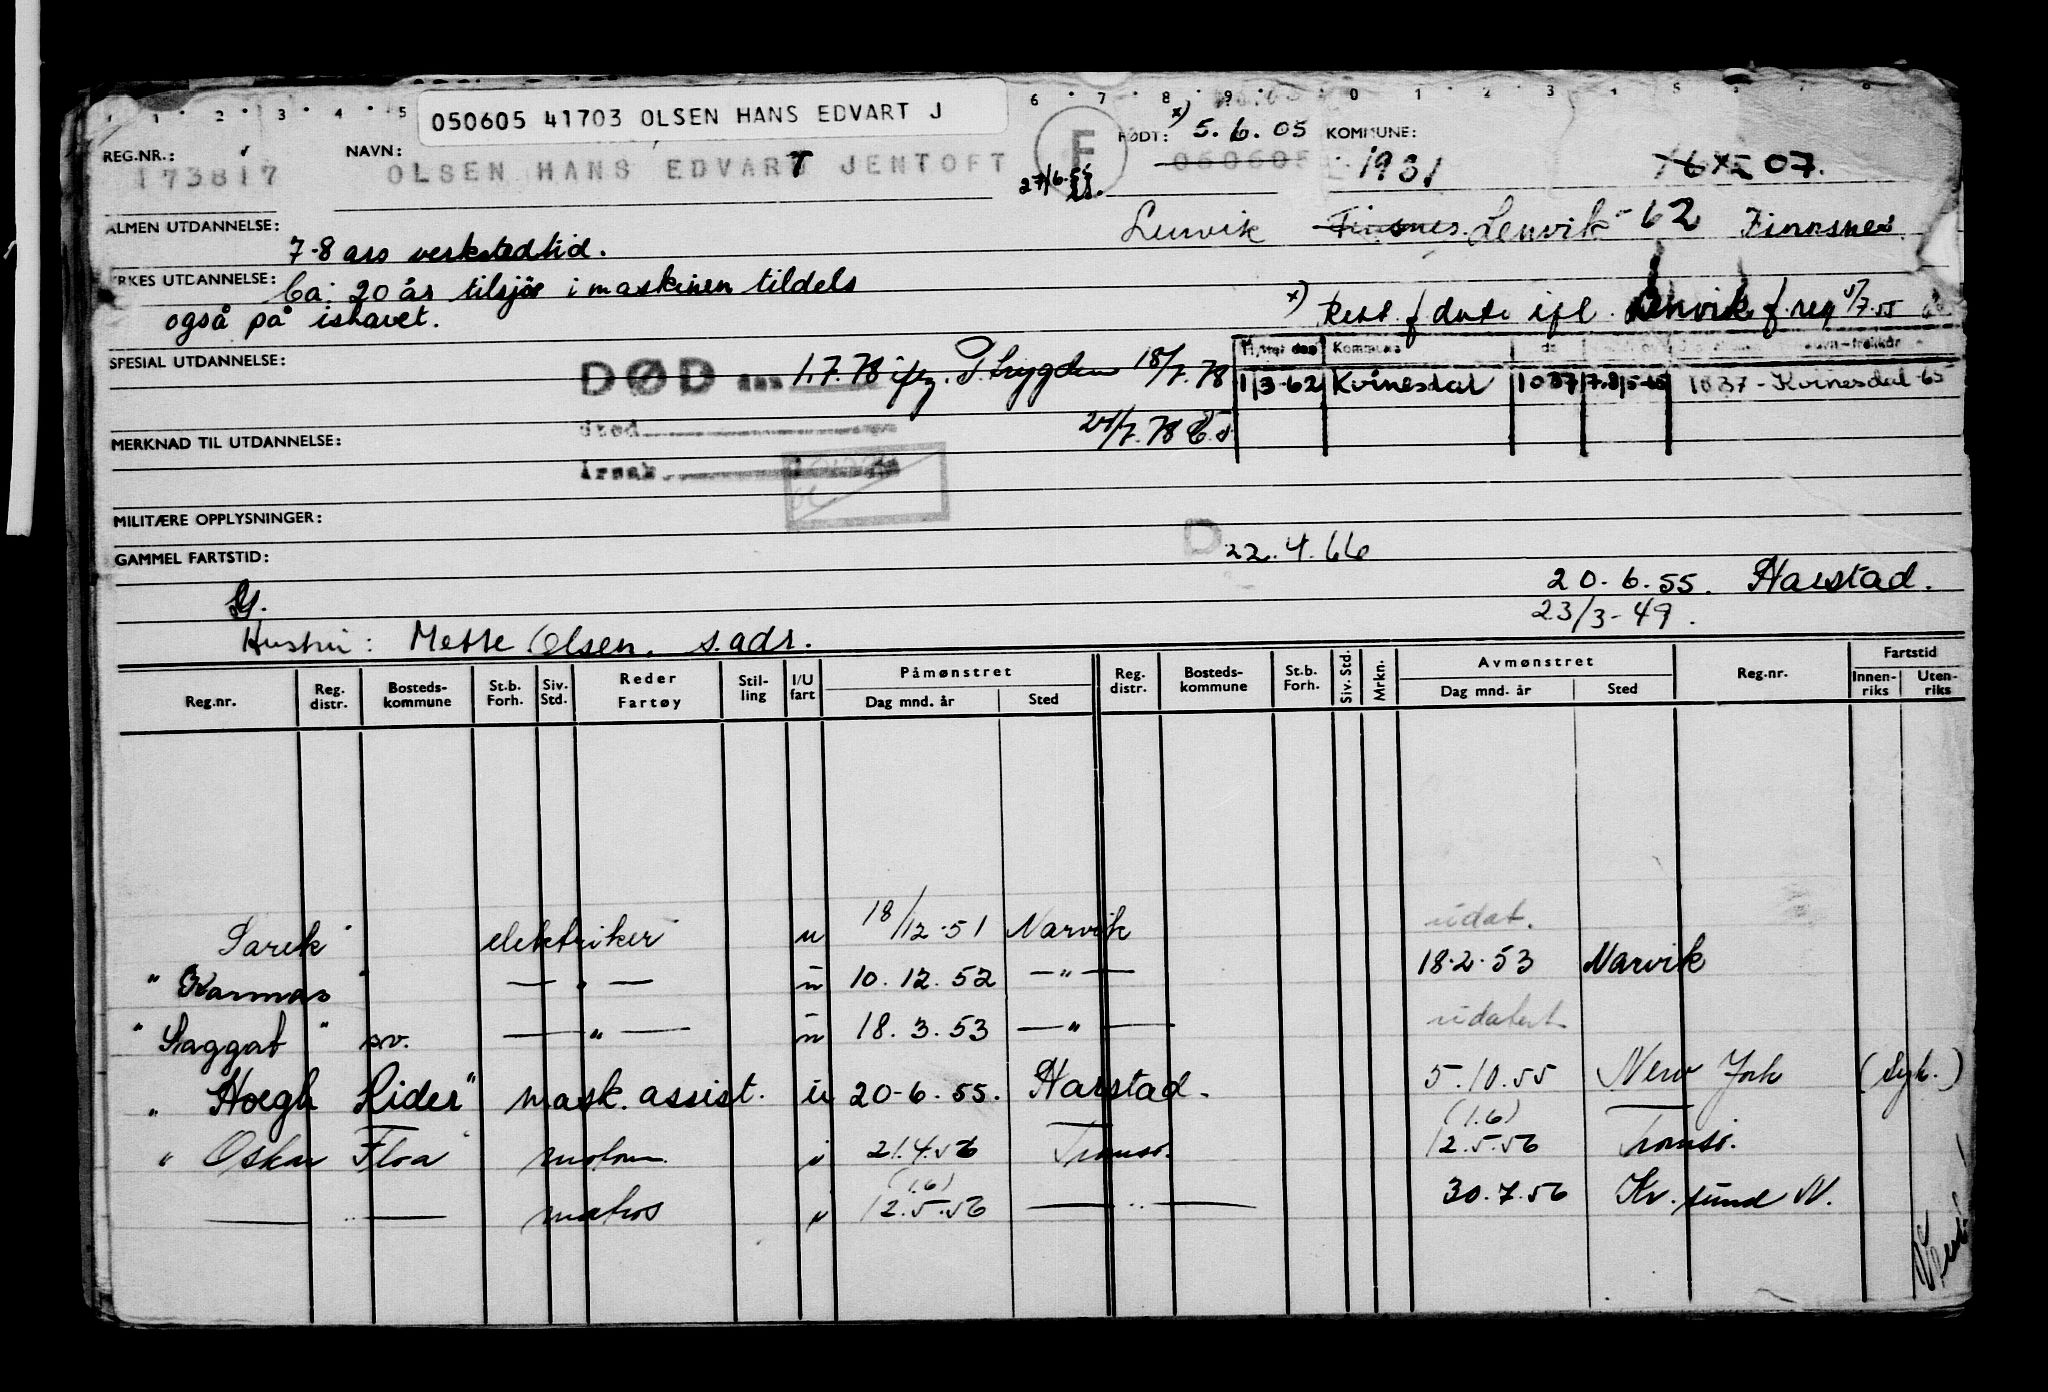 1 2 3 4 5 6 7 8 9 0 1 2 3 4 5
050605 41703 OLSEN HANS EDVART J
REG.NR.: 173817
NAVN: OLSEN HANS EDVART JENTOFT
F
27/6-55
FØDT: x) 5.6.05
050605
KOMMUNE:
1931 07.
ALMEN UTDANNELSE: Lenvik Finsnes Lenvik -62 Finnsnes
7-8 års verkstedtid.
YRKES UTDANNELSE: Ca. 20 år tilsjøs i maskinen tildels
også på ishavet.
x) Rett. f dato ifl. Lenvik f.reg 5/7.55
SPESIAL UTDANNELSE:
DØD den 1.7.78 iflg. P. trygden 18/7.78
Kommune
1/3-62 Kvinesdal 1037 7.8/5-65 1037 - Kvinesdal -65
Sted
24/7.78
MERKNAD TIL UTDANNELSE:
Årsak
MILITÆRE OPPLYSNINGER:
D 22.4.66
GAMMEL FARTSTID:
20.6.55. Harstad.
23/3-49.
Hustru: Mette Olsen. s.adr.
Reg.nr. Reg. distr. Bosteds-kommune St.b. Forh. Siv. Std. Reder Fartøy Stil-ling I/U fart Påmønstret Dag mnd. år Sted Reg. distr. Bosteds-kommune St.b. Forh. Siv. Std. Mrkn. Avmønstret Dag mnd. år Sted Reg.nr. Fartstid Innen-riks Uten-riks
Sarek" elektriker u 18/12-51 Narvik udat.
" Karmas " — " — u 10.12.52 — " — 18.2.53 Narvik
" Saggat " sv. — " — u 18.3.53 — " — udatert
" Hoegh Rider" mask. assist. u 20-6.55. Harstad. 5.10.55 New York (syk.)
" Oskar Floa" motorm. i 21.4.56 Tromsø. (1.6) 12.5.56 Tromsø.
— " — matros i (1.6) 12.5.56 — " — 30.7.56 Kr. sund N.